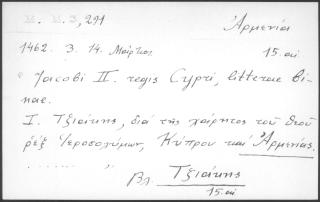 M. M. 3, 291
Ἀρμενία
1462. 3. 14. Μάρτιος 15. αἰ.
"Jacobi II. regis Cypri, litterae bi-
nae.
I. Τζιάκης, διὰ τῆς χάριτος τοῦ Θεοῦ
ῥὲξ Ἱεροσολύμων, Κύπρου καὶ Ἀρμενίας.
.......... "
Βλ. Τζιάκης
15. αἰ.